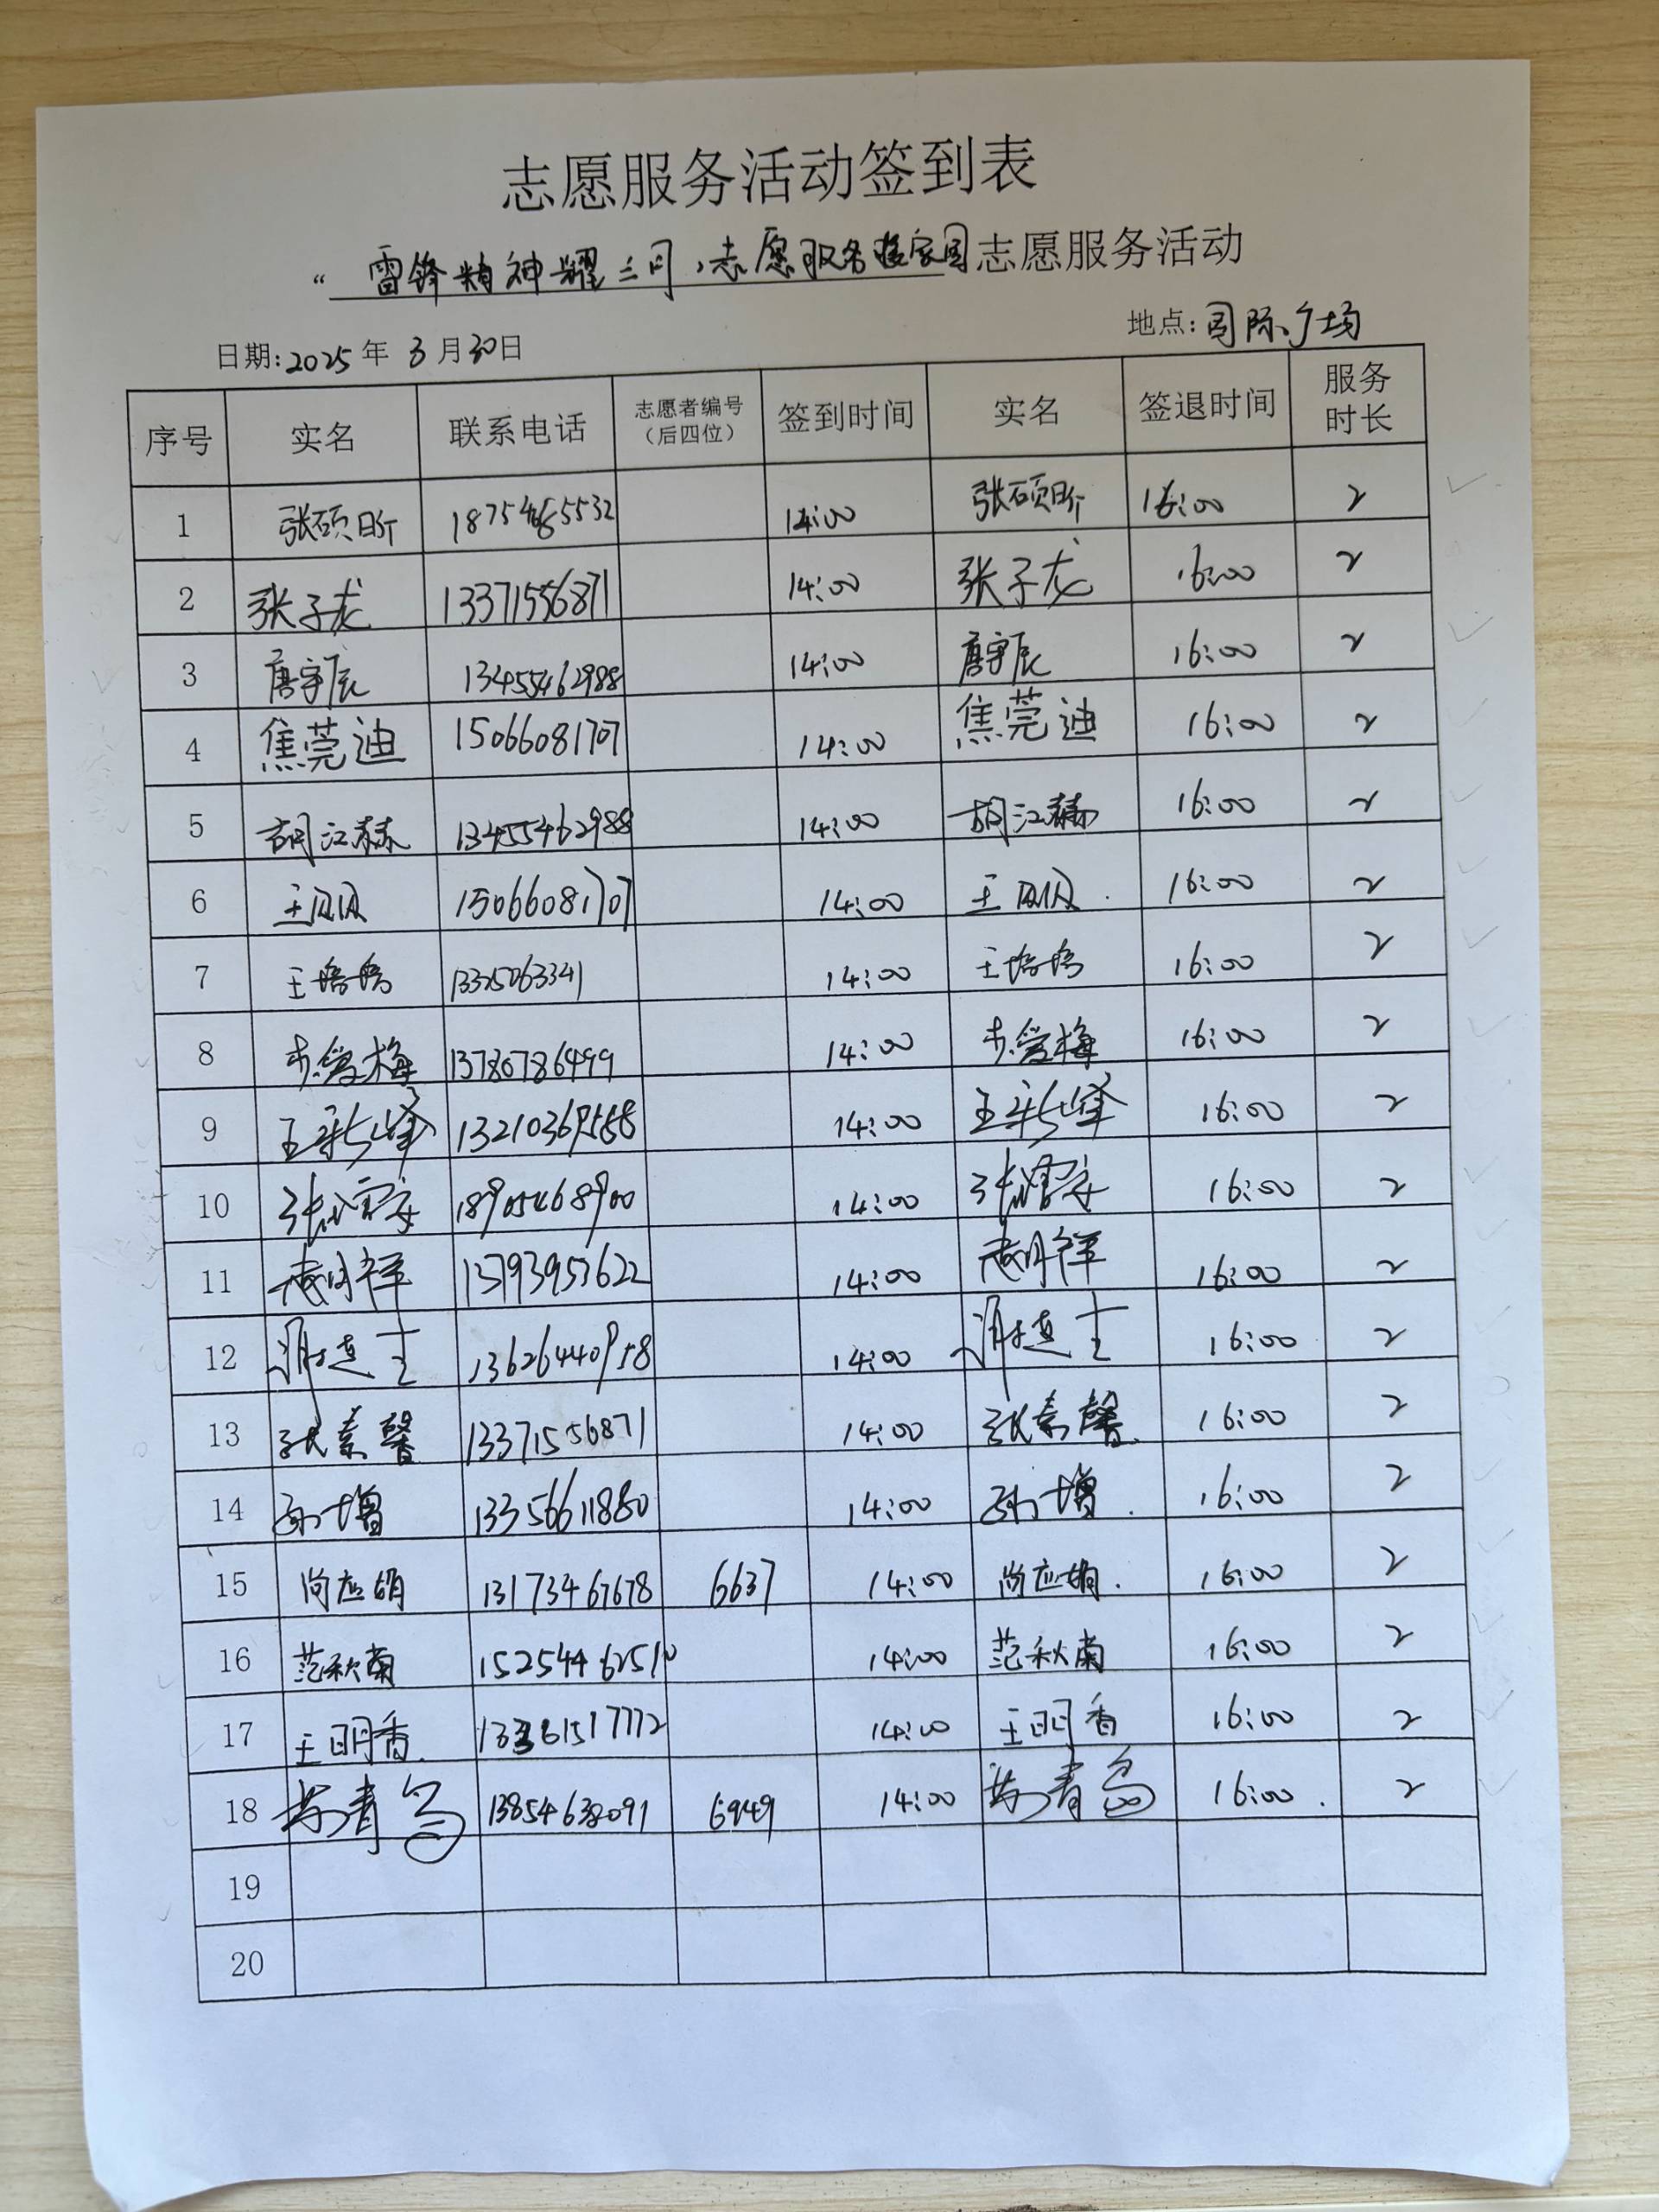 志愿服务活动签到表
“雷锋精神耀三月，志愿服务暖家园志愿服务活动
日期:2025年 3月30日 地点:国际广场
序号 实名 联系电话 志愿者编号（后四位） 签到时间 实名 签退时间 服务时长
1 张硕昕 14:00 张硕昕 16:00 2
2 张子龙 13371556871 14:00 张子龙 16:00 2
3 唐宇辰 13455462988 14:00 唐宇辰 16:00 2
4 焦莞迪 15066081707 14:00 焦莞迪 16:00 2
5 胡江赫 13455462988 14:00 胡江赫 16:00 2
6 王贝贝 15066081707 14:00 王贝贝 16:00 2
7 王培培 14:00 王培培 16:00 2
8 爱梅 13786786499 14:00 爱梅 16:00 2
9 王彩峰 14:00 王彩峰 16:00 2
10 张 18905468900 14:00 张 16:00 2
11 祥 13793957622 14:00 祥 16:00 2
12 13626440958 14:00 16:00 2
13 张素馨 13371556871 14:00 张素馨 16:00 2
14 孙增 13356611880 14:00 孙增 16:00 2
15 尚应娟 13173467678 6637 14:00 尚应娟 16:00 2
16 范秋菊 15254462510 14:00 范秋菊 16:00 2
17 王明香 13361517772 14:00 王明香 16:00 2
18 青岛 6949 14:00 青岛 16:00 2
19
20